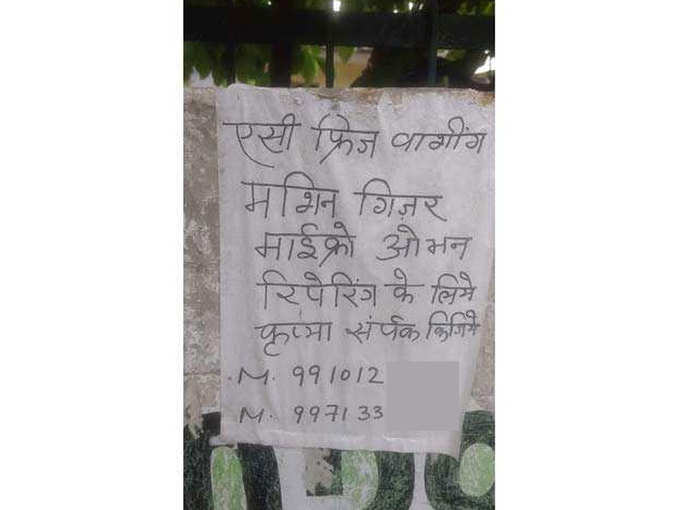 एसी फ्रिज वाशींग
मशिन गिज़र
माईक्रो ओभन
रिपेरिंग के लिये
कृप्या संर्पक किजिये
M. 991012
M. 997133